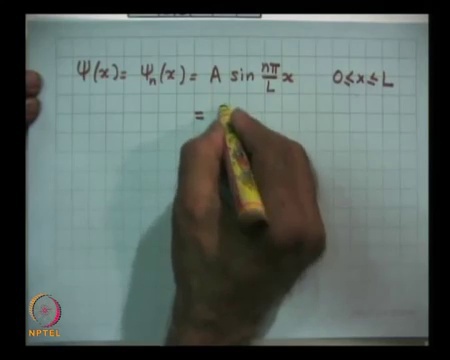 Ψ(x) = Ψₙ(x) = A sin nπ/L x    0≤x≤L
=
NPTEL